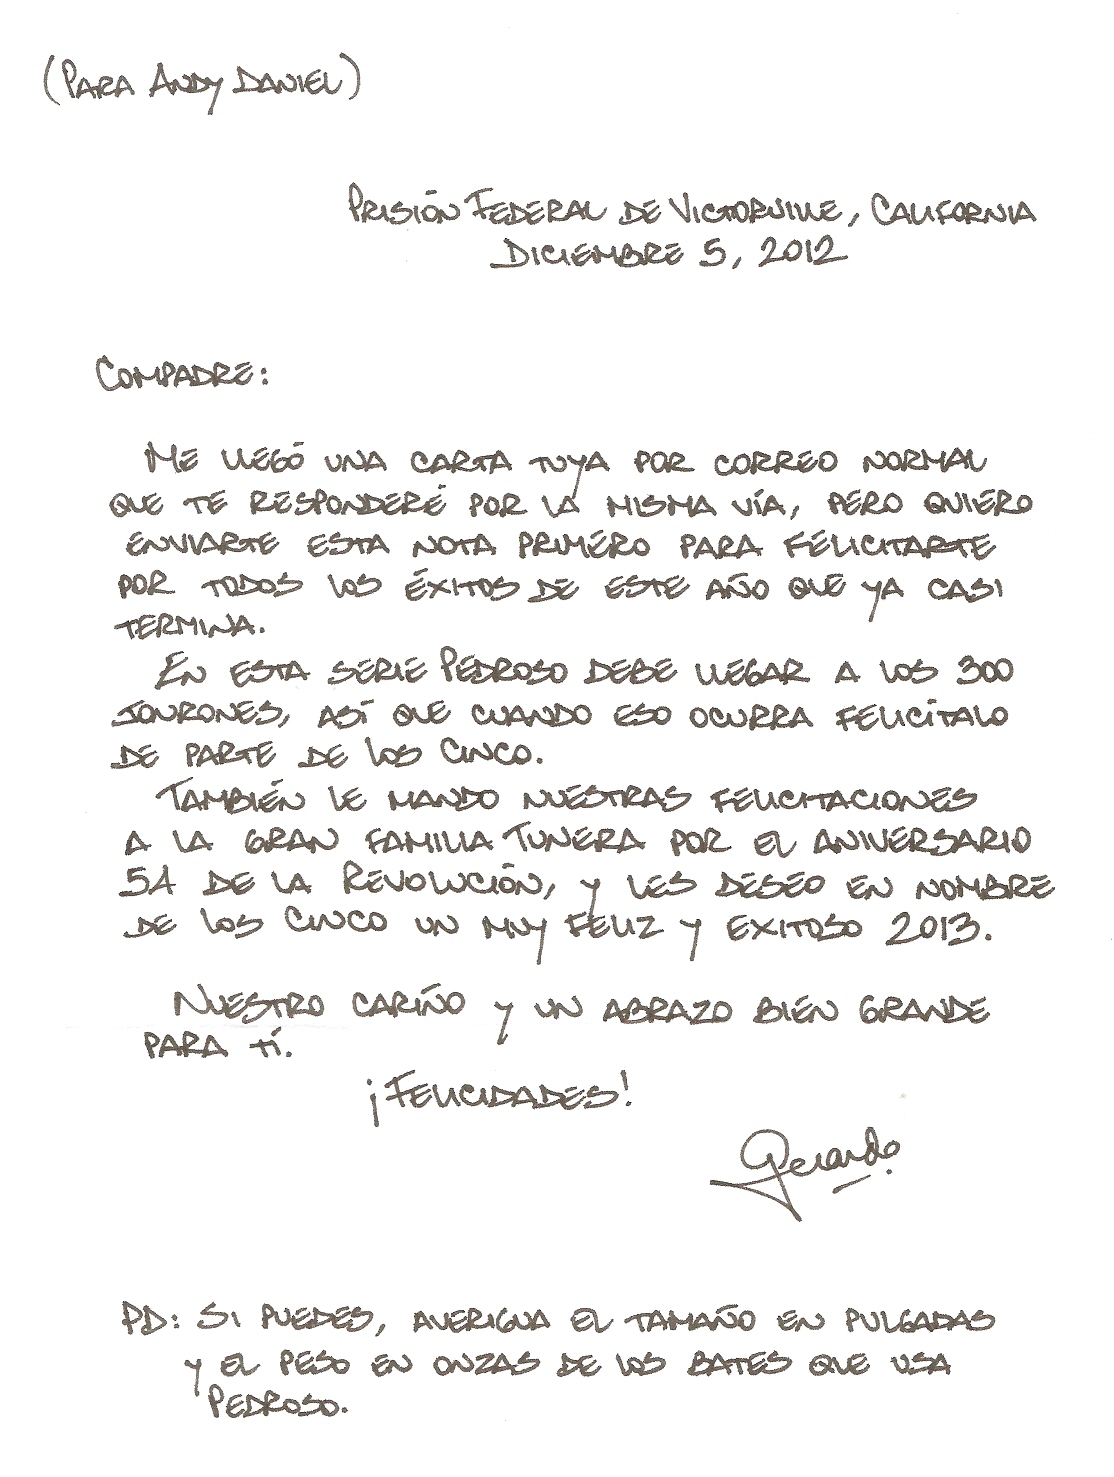 (Para Andy Daniel)
Prisión Federal de Victorville, California
Diciembre 5, 2012
Compadre:
Me llegó una carta tuya por correo normal
que te responderé por la misma vía, pero quiero
enviarte esta nota primero para felicitarte
por todos los éxitos de este año que ya casi
termina.
En esta serie Pedroso debe llegar a los 300
jonrones, así que cuando eso ocurra felicítalo
de parte de los Cinco.
También le mando nuestras felicitaciones
a la gran familia tunera por el aniversario
54 de la Revolución, y les deseo en nombre
de los Cinco un muy feliz y exitoso 2013.
Nuestro cariño y un abrazo bien grande
para tí.
¡Felicidades!
Gerardo
PD: Si puedes, averigua el tamaño en pulgadas
y el peso en onzas de los bates que usa
Pedroso.